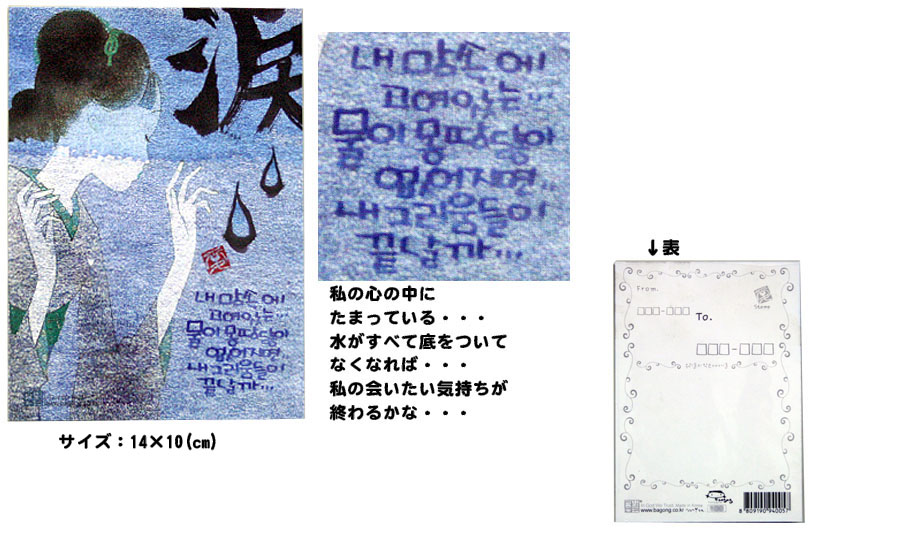 涙
내 맘속에
고여있는...
물이 몽땅 당아
없어지면..
내 그리움들이
끝날까...
내 맘속에
고여있는...
물이 몽땅 당아
없어지면..
내 그리움들이
끝날까...
私の心の中に
たまっている・・・
水がすべて底をついて
なくなれば・・・
私の会いたい気持ちが
終わるかな・・・
サイズ：14×10(cm)
↓表
From.
Stamp
To.
Made in Korea
www.bagong.co.kr
8 809190 940057